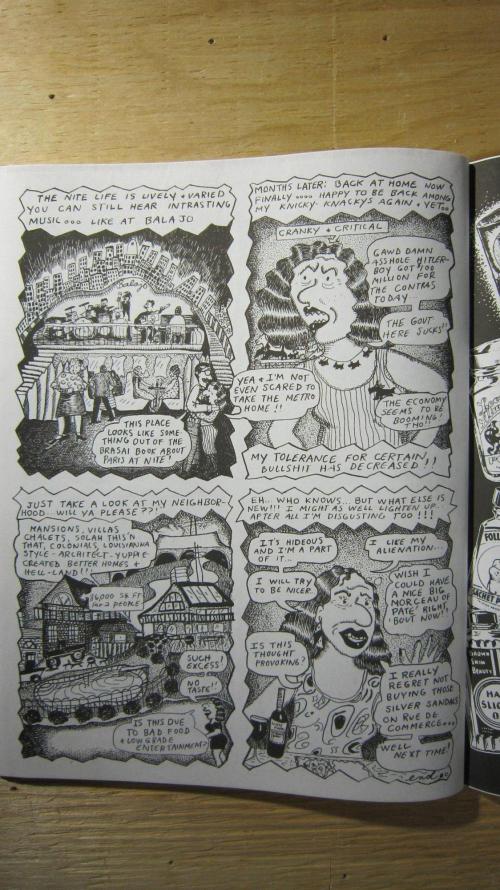 THE NITE LIFE IS LIVELY + VARIED
YOU CAN STILL HEAR INTRASTING
MUSIC... LIKE AT BALAJO
Balajo
THIS PLACE
LOOKS LIKE SOME
THING OUT OF THE
BRASAI BOOK ABOUT
PARIS AT NITE!
MONTHS LATER: BACK AT HOME NOW
FINALLY.... HAPPY TO BE BACK AMONG
MY KNICKY-KNACKYS AGAIN + YET..
CRANKY + CRITICAL
GAWD DAMN
ASSHOLE HITLER-
BOY GOT 100
MILLION FOR
THE CONTRAS
TODAY...
THE GOUT
HERE SUCKS!!
YEA + I'M NOT
EVEN SCARED TO
TAKE THE METRO
HOME!!
THE ECONOMY
SEEMS TO BE
BOOMING!
THO!!
MY TOLERANCE FOR CERTAIN
BULLSHIT HAS DECREASED!!
JUST TAKE A LOOK AT MY NEIGHBOR-
HOOD...WILL YA PLEASE???
MANSIONS, VILLAS
CHALETS, SOLAH THIS'N
THAT, COLONIALS, LOUISIANNA
STYLE - ARCHITECT - YUPPIE
CREATED BETTER HOMES +
HELL-LAND!!
SQ FT
for 2 people
SUCH
EXCESS!
NO
TASTE!!
IS THIS DUE
TO BAD FOOD
+ LOW GRADE
ENTERTAINMENT?
EH.. WHO KNOWS... BUT WHAT ELSE IS
NEW!!! I MIGHT AS WELL LIGHTEN UP..
AFTER ALL I'M DISGUSTING TOO!!!
IT'S HIDEOUS
AND I'M A PART
OF IT...
I LIKE MY
ALIENATION...
I WILL TRY
TO BE NICER.
WISH I
COULD HAVE
A NICE BIG
MORCEAU OF
PATE' RIGHT,
'BOUT NOW!
IS THIS
THOUGHT
PROVOKING?
I REALLY
REGRET NOT
BUYING THOSE
SILVER SANDALS
ON RUE DE
COMMERCE...
WELL
NEXT TIME!
end
FOLL
SACHET
SKIN
BEAUTY
HA
SLIC